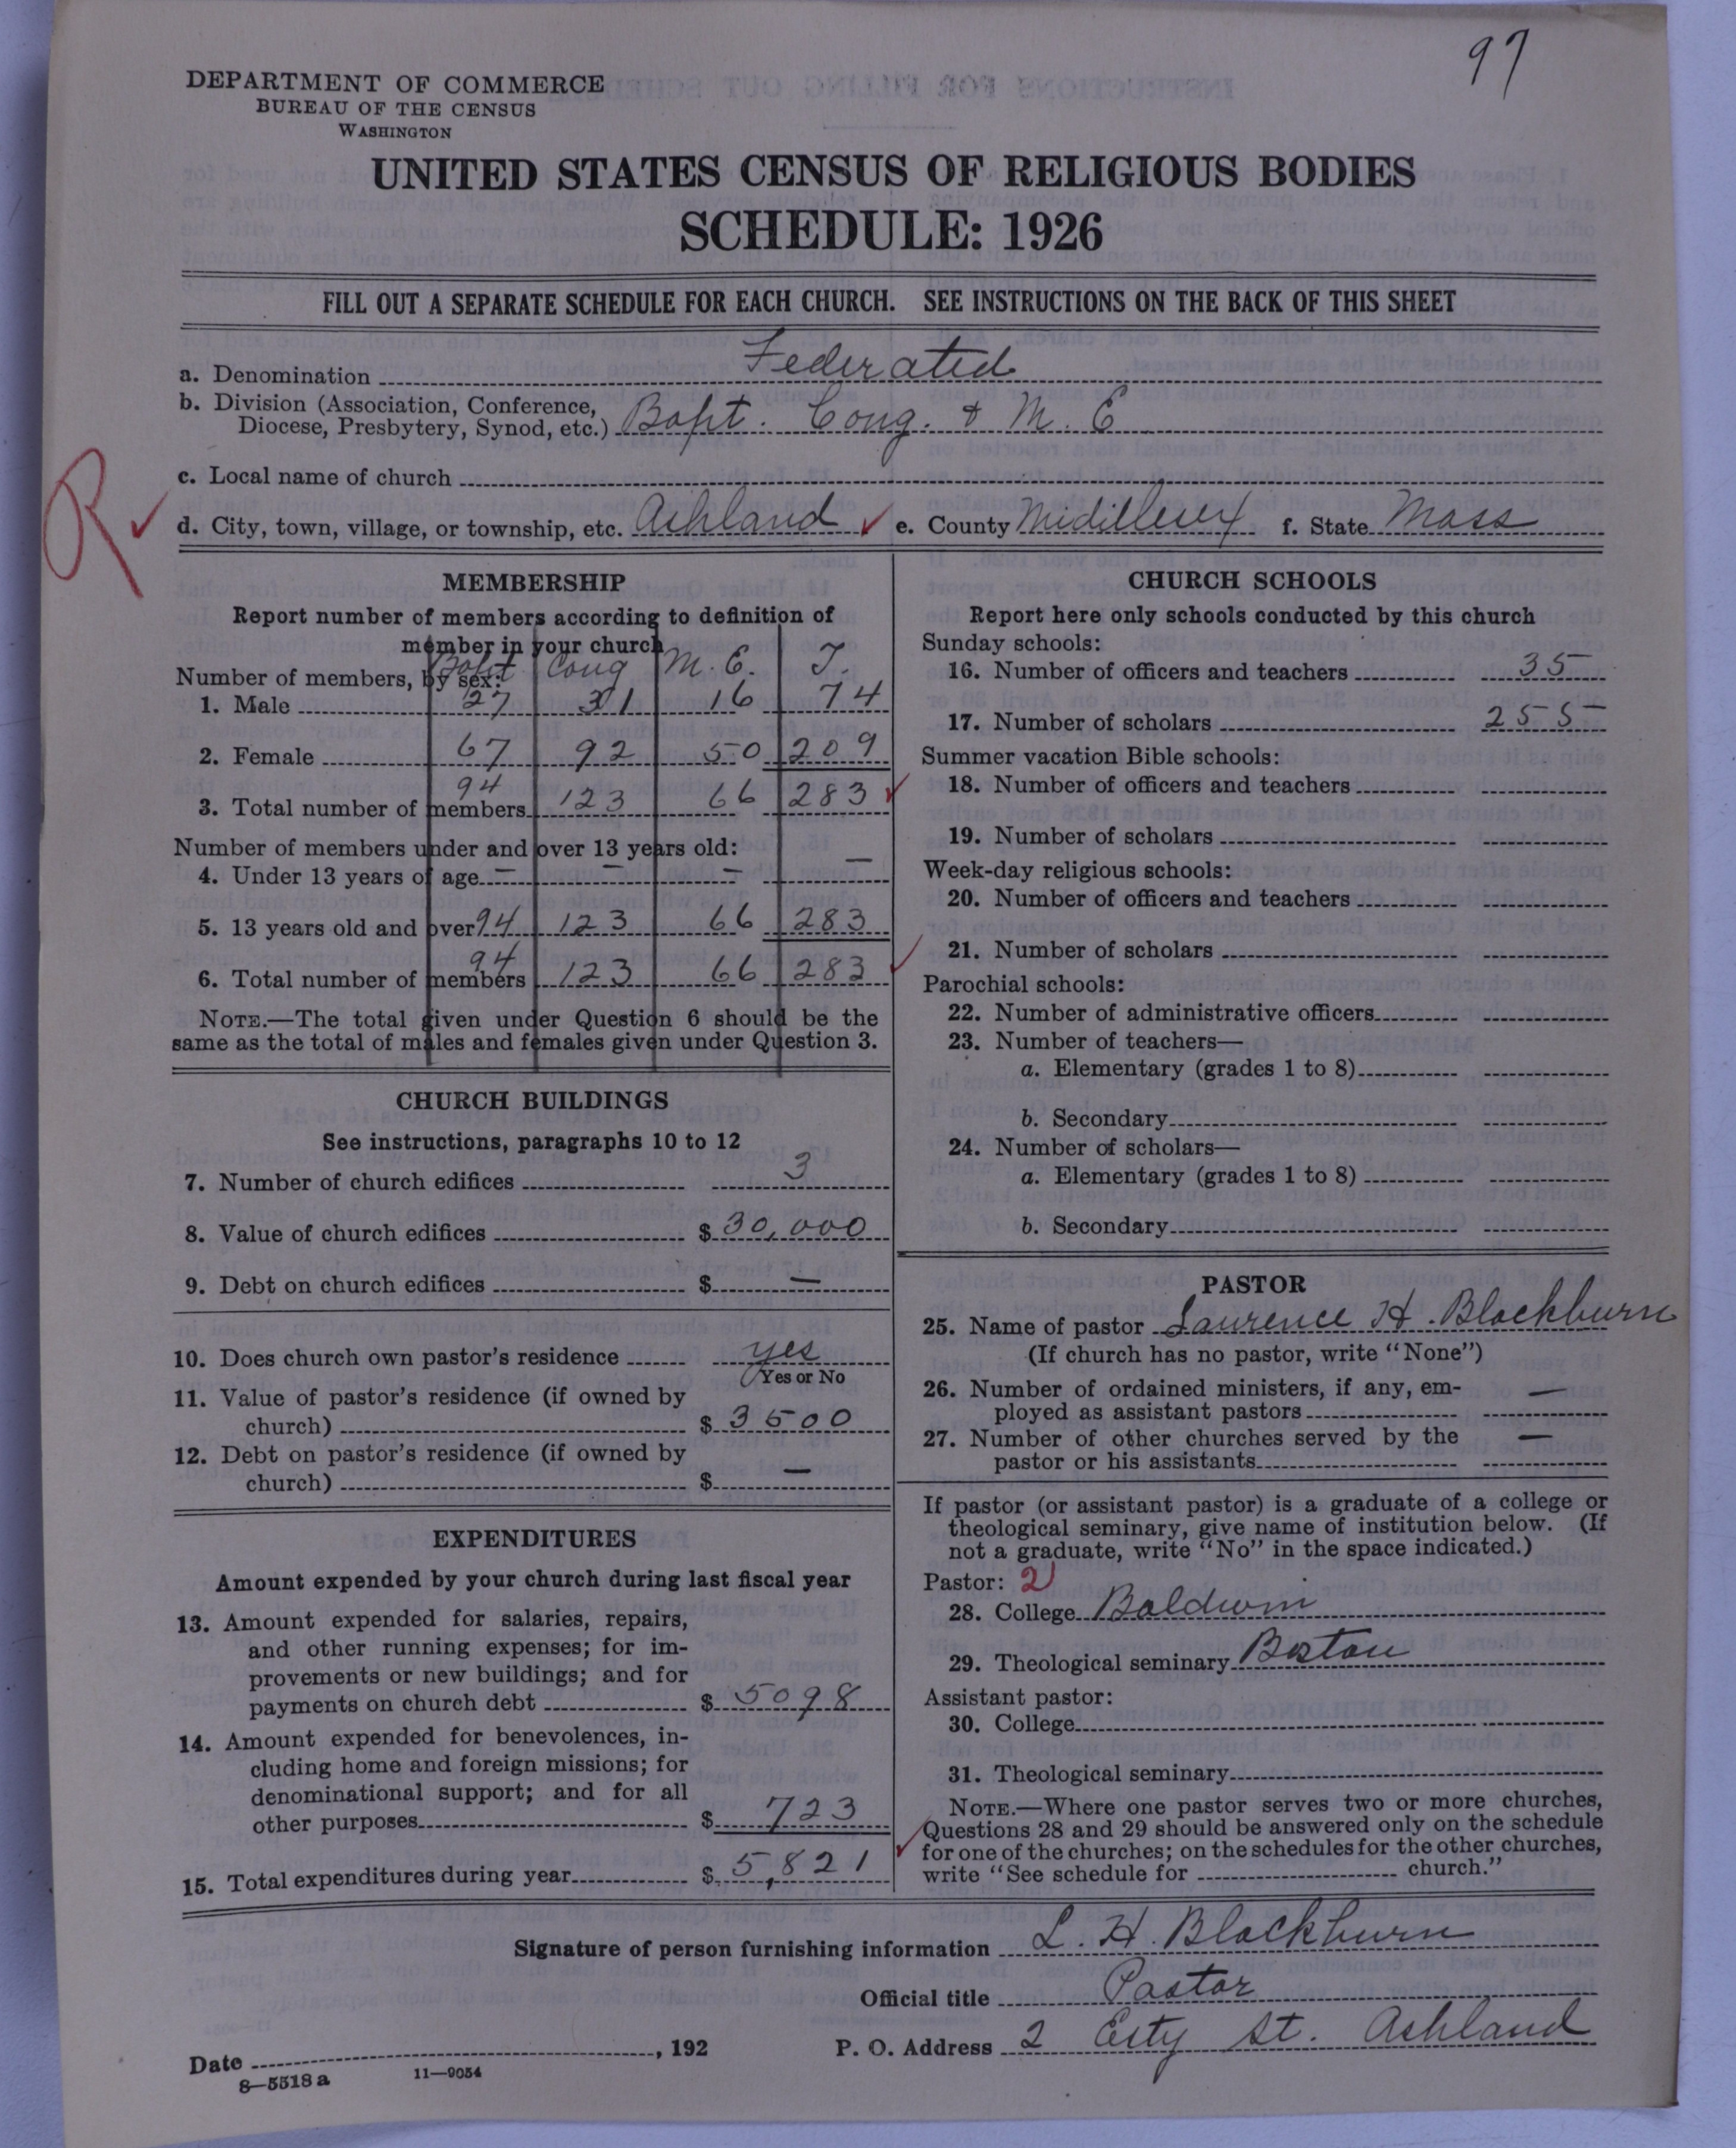 97
DEPARTMENT OF COMMERCE
BUREAU OF THE CENSUS
WASHINGTON
UNITED STATES CENSUS OF RELIGIOUS BODIES
SCHEDULE: 1926
FILL OUT A SEPARATE SCHEDULE FOR EACH CHURCH. SEE INSTRUCTIONS ON THE BACK OF THIS SHEET
a. Denomination Federated
b. Division (Association, Conference,
Diocese, Presbytery, Synod, etc.) Bapt. Cong. & M. E
c. Local name of church
R ✓ d. City, town, village, or township, etc. Ashland ✓ e. County Midillesex f. State Mass
MEMBERSHIP
Report number of members according to definition of
member in your church
Bapt Cong M. E. T.
Number of members, by sex:
1. Male 27 31 16 74
2. Female 67 92 50 209
3. Total number of members 94 123 66 283 ✓
Number of members under and over 13 years old:
4. Under 13 years of age — — — —
5. 13 years old and over 94 123 66 283
6. Total number of members 94 123 66 283 ✓
NOTE.—The total given under Question 6 should be the
same as the total of males and females given under Question 3.
CHURCH BUILDINGS
See instructions, paragraphs 10 to 12
7. Number of church edifices 3
8. Value of church edifices $ 30,000
9. Debt on church edifices $ —
10. Does church own pastor's residence yes
Yes or No
11. Value of pastor's residence (if owned by
church) $ 3500
12. Debt on pastor's residence (if owned by
church) $ —
EXPENDITURES
Amount expended by your church during last fiscal year
13. Amount expended for salaries, repairs,
and other running expenses; for im-
provements or new buildings; and for
payments on church debt $ 5098
14. Amount expended for benevolences, in-
cluding home and foreign missions; for
denominational support; and for all
other purposes $ 723
15. Total expenditures during year $ 5,821 ✓
CHURCH SCHOOLS
Report here only schools conducted by this church
Sunday schools:
16. Number of officers and teachers 35
17. Number of scholars 255
Summer vacation Bible schools:
18. Number of officers and teachers
19. Number of scholars
Week-day religious schools:
20. Number of officers and teachers
21. Number of scholars
Parochial schools:
22. Number of administrative officers
23. Number of teachers—
a. Elementary (grades 1 to 8)
b. Secondary
24. Number of scholars—
a. Elementary (grades 1 to 8)
b. Secondary
PASTOR
25. Name of pastor Laurence H. Blackburn
(If church has no pastor, write "None")
26. Number of ordained ministers, if any, em-
ployed as assistant pastors —
27. Number of other churches served by the
pastor or his assistants —
If pastor (or assistant pastor) is a graduate of a college or
theological seminary, give name of institution below. (If
not a graduate, write "No" in the space indicated.)
Pastor: 2
28. College Baldwin
29. Theological seminary Boston
Assistant pastor:
30. College
31. Theological seminary
NOTE.—Where one pastor serves two or more churches,
Questions 28 and 29 should be answered only on the schedule
for one of the churches; on the schedules for the other churches,
write "See schedule for church."
Signature of person furnishing information L. H. Blackburn
Official title Pastor
Date , 192 P. O. Address 2 Esty St. Ashland
8—5518 a 11—9054